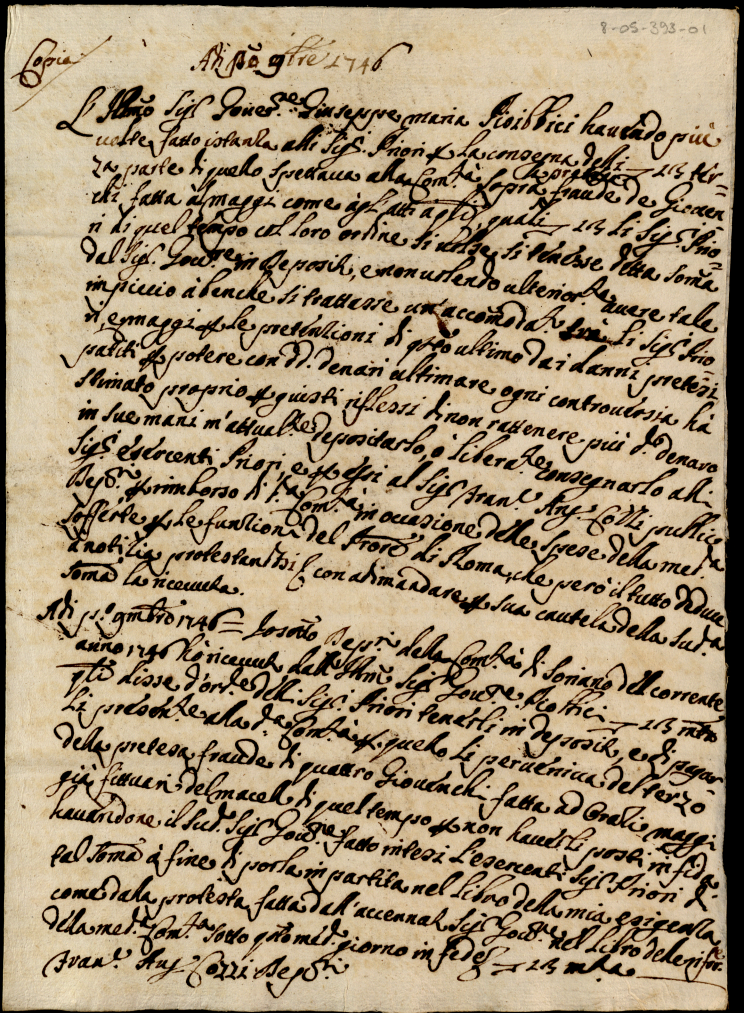 8-05-393-01
Copia
Adi p.o 9bre 1746
L'Illmo Sig.r Gover.re Giuseppe Maria havendo più
volte fatto istanza alli Sig.ri Priori p la consegna delli
za parte di quello spettava alla Com.tà sopra fraude de Gioven=
chi fatta à Maggi come agl'atti quali Li Sig.ri Prio=
ri di quel tempo col loro ordine si tenesse detta somma
dal Sig.r Gov.re in deposito, e non volendo ulterior.te avere tale
impiccio à benche si trattasse un'accomodato trà Li Sig.ri Prio=
ri, e Maggi p le pretenzioni di q̃sto ultimo da i danni pretesi
patiti p potere con dd. denari ultimare ogni controversia hà
stimato proprio p giusti riflessi di non rattenere più d.o denaro
in sue mani m'attual.te depositarlo, ò libera.te consegnarlo alli
Sig.ri esercenti Priori, e p essi al Sig.r Fran.co Ang.o Cozzi publico
Dep.rio p rimborso di d.a Com.tà in occasione delle spese della med.a
sofferte p le funzioni del di Roma, che però il tutto deduce
à notizia protestandosi con adimandare p sua cautela della sud.a
somma la ricevuta.
Adi p.o 9mbre 1746 = Io sotto Dep.rio della Com.tà di Soriano dell corrente
anno 1746 hò ricevuto dall'Illmo Sig.r Gov.re
q̃li disse d'ord.e delli Sig.ri Priori tenerli in deposito, e di pagar
li alla d.a Com.tà p quello li perveniva del terzo
della pretesa fraude di quattro Giovenchi fatta ad Orazio Maggi
già fittuario del macello di quel tempo p non haverli posti in fida
havendone il sud.o Sig.r Gov.re fatto intesi l'esercenti Sig.ri Priori di
tal somma à fine di porla in partita nel Libro della mia esigenza
come dalla protesta fatta dall'accennato Sig.r Gov.re nel Libro delle rifor.e
della med.a Com.tà sotto q̃sto med.o giorno in fede
Fran.co Ang.o Cozzi Dep.rio